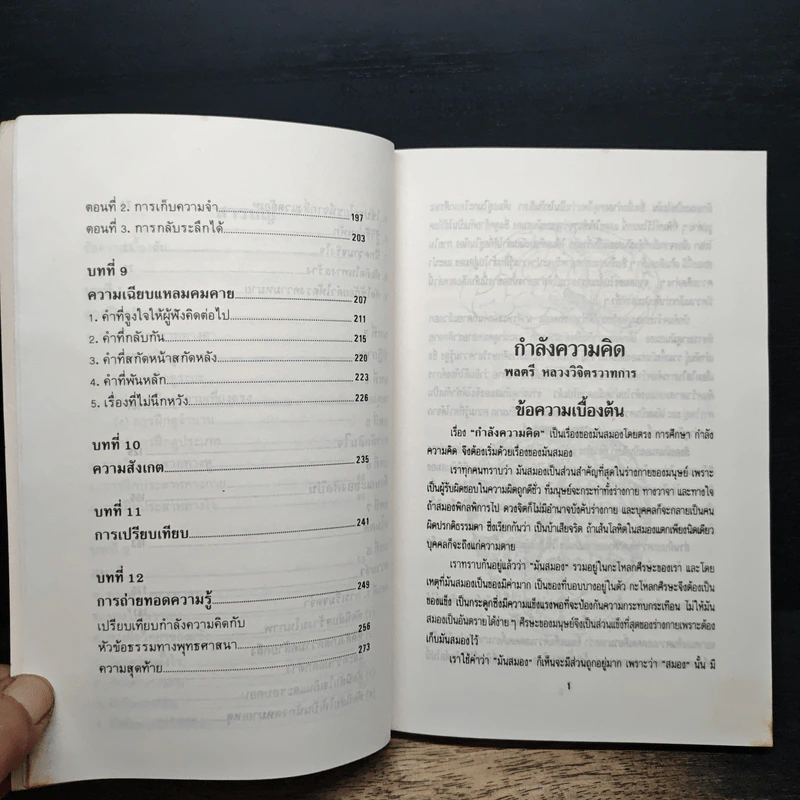 ตอนที่ 2. การเก็บความจำ 197
ตอนที่ 3. การกลับระลึกได้ 203
บทที่ 9
ความเฉียบแหลมคมคาย 207
1. คำที่จูงใจให้ผู้ฟังคิดต่อไป 211
2. คำที่กลับกัน 215
3. คำที่สกัดหน้าสกัดหลัง 220
4. คำที่พันหลัก 223
5. เรื่องที่ไม่นึกหวัง 226
บทที่ 10
ความสังเกต 235
บทที่ 11
การเปรียบเทียบ 241
บทที่ 12
การถ่ายทอดความรู้ 249
เปรียบเทียบกำลังความคิดกับ
หัวข้อธรรมทางพุทธศาสนา 256
ความสุดท้าย 273
กำลังความคิด
พลตรี หลวงวิจิตรวาทการ
ข้อความเบื้องต้น
เรื่อง "กำลังความคิด" เป็นเรื่องของมันสมองโดยตรง การศึกษา กำลัง
ความคิด จึงต้องเริ่มด้วยเรื่องของมันสมอง
เราทุกคนทราบว่า มันสมองเป็นส่วนสำคัญที่สุดในร่างกายของมนุษย์ เพราะ
เป็นผู้รับผิดชอบในความผิดถูกดีชั่ว ที่มนุษย์จะกระทำทั้งร่างกาย ทางวาจา และทางใจ
ถ้าสมองพิกลพิการไป ดวงจิตก็ไม่มีอำนาจบังคับร่างกาย และบุคคลก็จะกลายเป็นคน
ผิดปรกติธรรมดา ซึ่งเรียกกันว่า เป็นบ้าเสียจริต ถ้าเส้นโลหิตในสมองแตกเพียงนิดเดียว
บุคคลก็จะถึงแก่ความตาย
เราทราบกันอยู่แล้วว่า "มันสมอง" รวมอยู่ในกะโหลกศีรษะของเรา และโดย
เหตุที่มันสมองเป็นของมีค่ามาก เป็นของที่บอบบางอยู่ในตัว กะโหลกศีรษะจึงต้องเป็น
ของแข็ง เป็นกระดูกซึ่งมีความแข็งแรงพอที่จะป้องกันความกระทบกระเทือน ไม่ให้มัน
สมองเป็นอันตรายได้ง่าย ๆ ศีรษะของมนุษย์จึงเป็นส่วนแข็งที่สุดของร่างกายเพราะต้อง
เก็บมันสมองไว้
เราใช้คำว่า "มันสมอง" ก็เห็นจะมีส่วนถูกอยู่มาก เพราะว่า "สมอง" นั้น มี
1